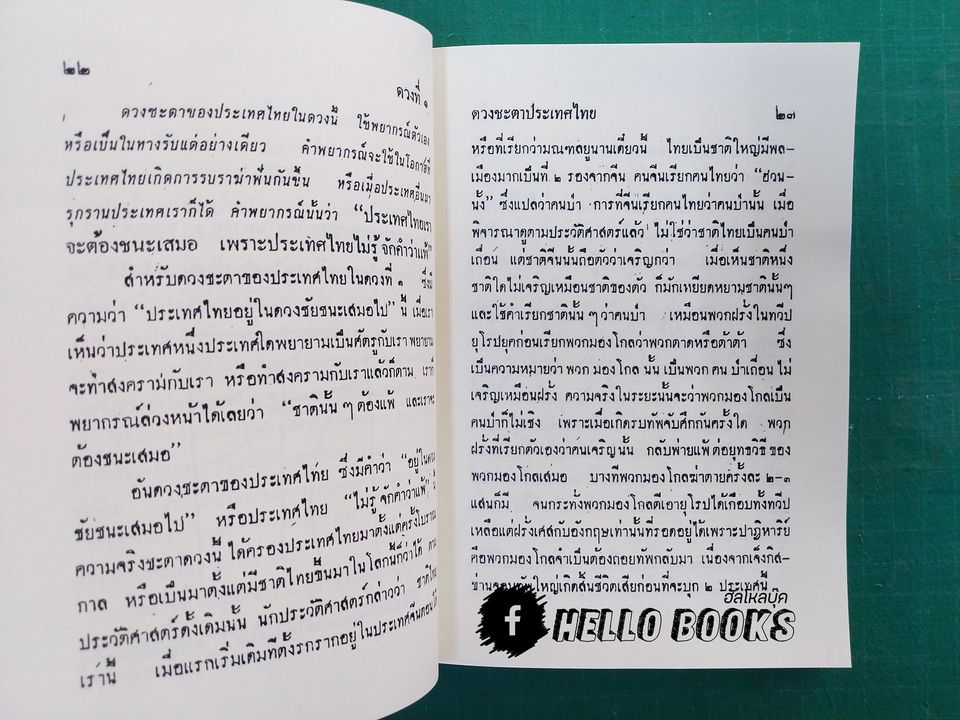 ๒๒
ดวงที่ ๑
ดวงชะตาของประเทศไทยในดวงนี้ ใช้พยากรณ์ตัวเอง
หรือเป็นในทางรับแต่อย่างเดียว คำพยากรณ์จะใช้ในโอกาสที่
ประเทศไทยเกิดการรบราฆ่าฟันกันขึ้น หรือเมื่อประเทศอื่นมา
รุกรานประเทศเราก็ได้ คำพยากรณ์นั้นว่า “ประเทศไทยเรา
จะต้องชนะเสมอ เพราะประเทศไทยไม่รู้จักคำว่าแพ้”
สำหรับดวงชะตาของประเทศไทยในดวงที่ ๑ ซึ่งมี
ความว่า “ประเทศไทยอยู่ในดวงชัยชนะเสมอไป” นี้ เมื่อเรา
เห็นว่าประเทศหนึ่งประเทศใดพยายามเป็นศัตรูกับเรา พยายาม
จะทำสงครามกับเรา หรือทำสงครามกับเราแล้วก็ตาม เราก็
พยากรณ์ล่วงหน้าได้เลยว่า “ชาตินั้น ๆ ต้องแพ้ และเราจะ
ต้องชนะเสมอ”
อันดวงชะตาของประเทศไทย ซึ่งมีคำว่า “อยู่ในดวง
ชัยชนะเสมอไป” หรือประเทศไทย “ไม่รู้จักคำว่าแพ้”
ความจริงชะตาดวงนี้ ได้ครองประเทศไทยมาตั้งแต่ครั้งโบราณ
กาล หรือเป็นมาตั้งแต่มีชาติไทยขึ้นมาในโลกนี้ก็ว่าได้ ตาม
ประวัติศาสตร์ดั้งเดิมนั้น นักประวัติศาสตร์กล่าวว่า ชาติไทย
เรานี้ เมื่อแรกเริ่มเดิมทีตั้งรกรากอยู่ในประเทศจีนตอนใต้
ดวงชะตาประเทศไทย
๒๓
หรือที่เรียกว่ามณฑลยูนานเดี๋ยวนี้ ไทยเป็นชาติใหญ่มีพล-
เมืองมากเป็นที่ ๒ รองจากจีน คนจีนเรียกคนไทยว่า “ฮวน-
นั้ง” ซึ่งแปลว่าคนป่า การที่จีนเรียกคนไทยว่าคนป่านั้น เมื่อ
พิจารณาดูตามประวัติศาสตร์แล้ว ไม่ใช่ว่าชาติไทยเป็นคนป่า
เถื่อน แต่ชาติจีนนั้นถือตัวว่าเจริญกว่า เมื่อเห็นชาติหนึ่ง
ชาติใดไม่เจริญเหมือนชาติของตัว ก็มักเหยียดหยามชาตินั้นๆ
และใช้คำเรียกชาตินั้น ๆ ว่าคนป่า เหมือนพวกฝรั่งในทวีป
ยุโรปยุคก่อนเรียกพวกมองโกลว่าพวกตาดหรือต้าด้า ซึ่ง
เป็นความหมายว่า พวก มองโกล นั้น เป็นพวก คน ป่าเถื่อน ไม่
เจริญเหมือนฝรั่ง ความจริงในระยะนั้นจะว่าพวกมองโกลเป็น
คนป่าก็ไม่เชิง เพราะเมื่อเกิดรบทัพจับศึกกันครั้งใด พวก
ฝรั่งที่เรียกตัวเองว่าคนเจริญ นั้น กลับพ่ายแพ้ ต่อยุทธวิธี ของ
พวกมองโกลเสมอ บางทีพวกมองโกลฆ่าตายครั้งละ ๒-๓
แสนก็มี จนกระทั่งพวกมองโกลตีเอายุโรปได้เกือบทั้งทวีป
เหลือแต่ฝรั่งเศสกับอังกฤษเท่านั้นที่รอดอยู่ได้เพราะปาฏิหาริย์
คือพวกมองโกลจำเป็นต้องถอยทัพกลับมา เนื่องจากเจ็งกิส-
ข่านจอมทัพใหญ่เกิดสิ้นชีวิตเสียก่อนที่จะบุก ๒ ประเทศนี้
ฮัลโหลบุ๊ค
f HELLO BOOKS